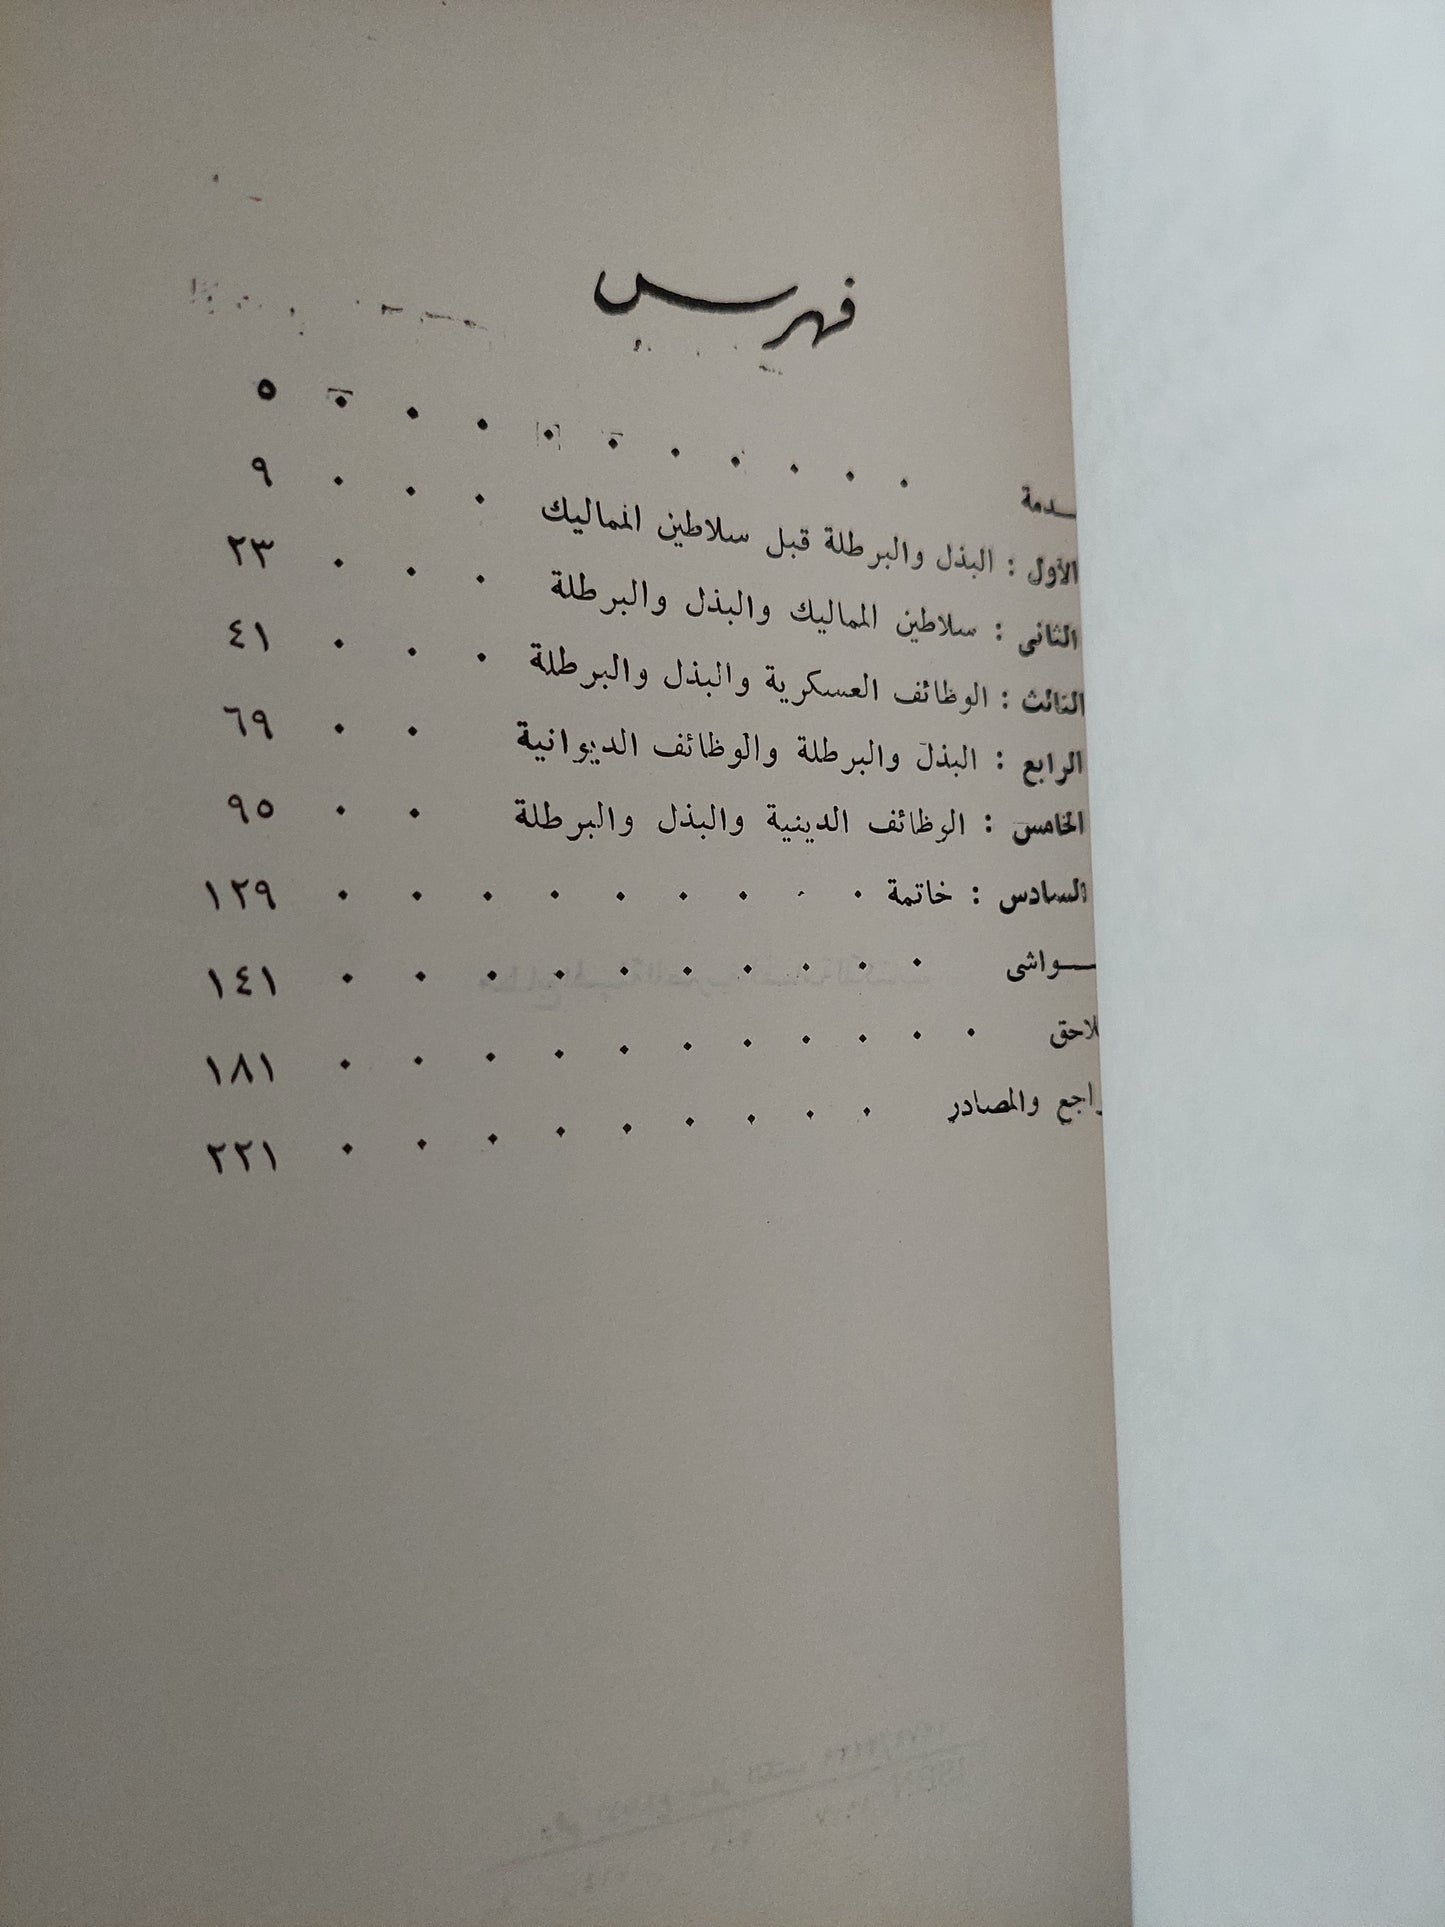 فهرس
ـدمة . . . . . . . . . . ٥
الأول : البذل والبرطلة قبل سلاطين المماليك . . . ٩
الثانى : سلاطين المماليك والبذل والبرطلة . . . ٢٣
الثالث : الوظائف العسكرية والبذل والبرطلة . . . ٤١
الرابع : البذل والبرطلة والوظائف الديوانية . . ٦٩
الخامس : الوظائف الدينية والبذل والبرطلة . . ٩٥
السادس : خاتمة . . . . . . . . . ١٢٩
ـواشى . . . . . . . . . . ١٤١
لاحق . . . . . . . . . . . ١٨١
راجع والمصادر . . . . . . . . . ٢٢١